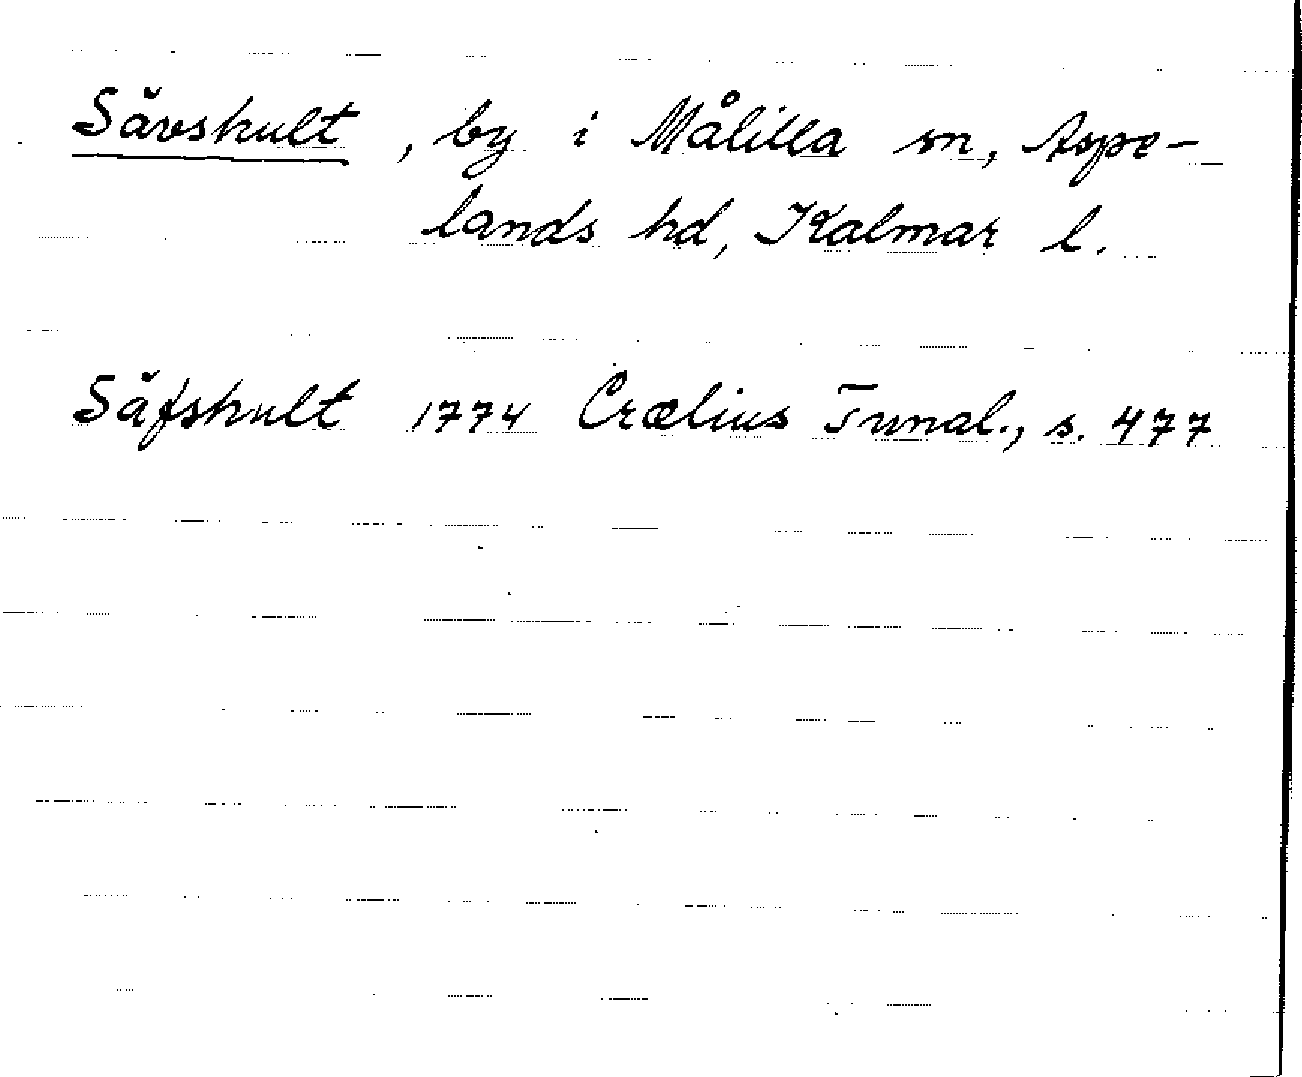 Sävshult, by i Målilla sn, Aspe-
lands hd, Kalmar l.
Säfshult 1774 Crælius Tunal., s. 477